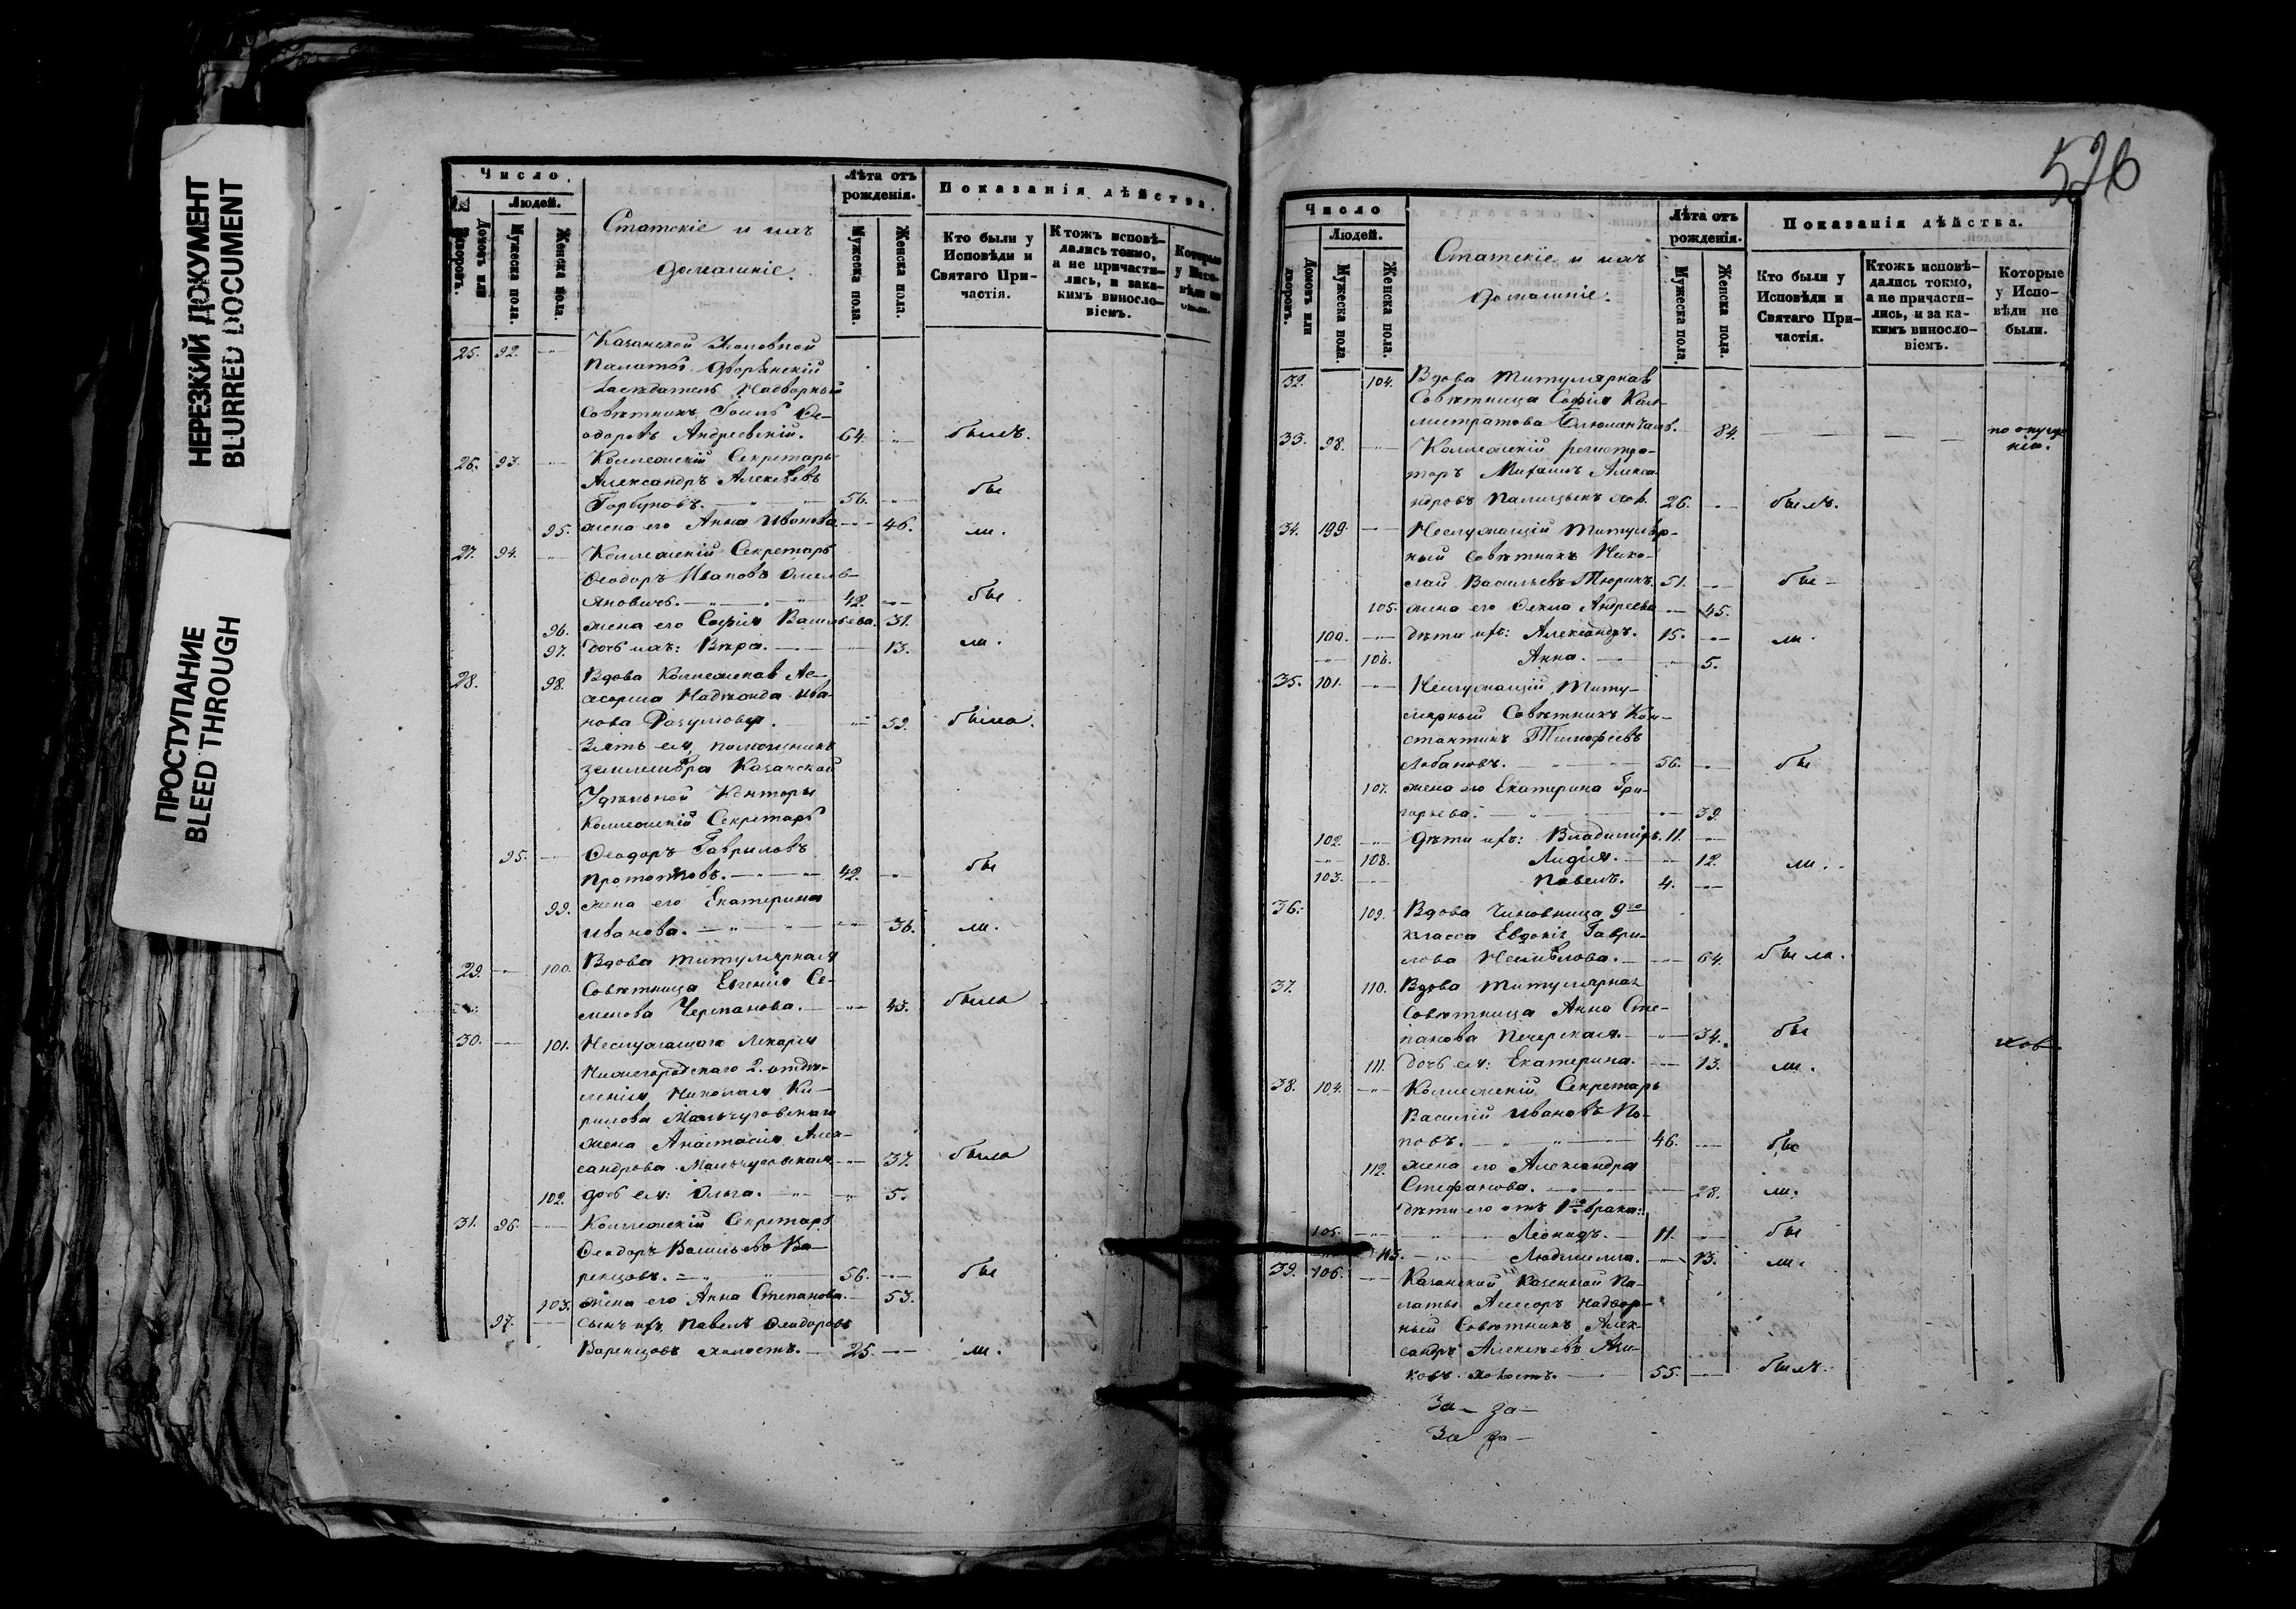 НЕРЕЗКИЙ ДОКУМЕНТ
BLURRED DOCUMENT
ПРОСТУПАНИЕ
BLEED THROUGH
Число.
Людей.
Домовъ или дворовъ.
Мужеска пола.
Женска пола.
Статскіе и ихъ
домашніе.
Лѣта отъ рожденія.
Мужеска пола.
Женска пола.
Показанія дѣйства.
Кто были у Исповѣди и Святаго Причастія.
Ктожъ исповѣдались токмо, а не причастились, и за какимъ винословіемъ.
Которые у Исповѣди не были.
25. 92. Казанской Уголовной
Палаты Дворянскій
Засѣдатель Надворный
Совѣтникъ Ѳе-
одоровъ Андреевскій. 64. былъ.
26. 93. Коллежскій Секретарь
Александръ Алексѣевъ
Горбуновъ. 56. бы
95. жена его Анна Иванова 46. ли.
27. 94. Коллежскій Секретарь
Ѳеодоръ Ивановъ Омель-
яновичь. 42. бы
96. жена его Софія Васильева. 31.
97. дочь ихъ: Вѣра. 13. ли.
28. 98. Вдова Коллежская Ас-
сесорша Надежда Ива-
нова Разумова. 59. была.
Зять ея, помощникъ
землемѣра Казанской
Удѣльной Конторы
Коллежскій Секретарь
95. Ѳеодоръ Гавриловъ
42. бы
99. жена его Екатерина
Иванова. 36. ли.
29. 100. Вдова Титулярная
Совѣтница Евгенія Се-
менова Черепанова. 43. была
30. 101. Неслужащаго Лекаря
Нижегородскаго 2. отдѣ-
ленія Николая Ки-
рилова Мальчуговскаго
жена Анастасія Алек-
сандрова Мальчуговская 37. была
102. дочь ея: Ольга. 5.
31. 96. Коллежскій Секретарь
Ѳеодоръ Васильевъ Ва-
ренцовъ. 56. бы
103. жена его Анна Степанова. 53.
97. Сынъ ихъ Павелъ Ѳеодоровъ
Варенцовъ холостъ. 25. ли.
526
Число
Людей.
Домовъ или дворовъ.
Мужеска пола.
Женска пола.
Статскіе и ихъ
домашніе.
Лѣта отъ рожденія.
Мужеска пола.
Женска пола.
Показанія дѣйства.
Кто были у Исповѣди и Святаго Причастія.
Ктожъ исповѣдались токмо, а не причастились, и за какимъ винословіемъ.
Которые у Исповѣди не были.
32. 104. Вдова Титулярная
Совѣтница Софія Кал-
листратова 84. по опуще-
нію.
33. 98. Коллежскій регистра-
торъ Михаилъ Алекса-
ндровъ Палицынъ хол. 26. былъ.
34. 199. Неслужащій Титуляр-
ный Совѣтникъ Нико-
лай Васильевъ Тюринъ. 51. бы
105. жена его Ѳекла Андреева 45.
100. дѣти ихъ: Александръ. 15. ли.
106. Анна. 5.
35. 101. Неслужащій Титу-
лярный Совѣтникъ Кон-
стантинъ Тимофеевъ
Лобановъ. 56. бы
107. жена его Екатерина Гри-
горьева. 39.
102. дѣти ихъ: Владиміръ. 11.
108. Лидія. 12. ли.
103. Павелъ. 4.
36. 109. Вдова Чиновница 9го
класса Евдокія Гаври-
лова 64. была.
37. 110. Вдова Титулярная
Совѣтница Анна Сте-
панова Печерская. 34. бы
111. дочь ея: Екатерина. 13. ли.
38. 104. Коллежскій Секретарь
Василій Ивановъ По-
повъ. 46. бы
112. жена его Александра
Стефанова. 28. ли.
дѣти его отъ 1го брака:
105. Леонидъ. 11. бы
113. Людмилла. 13. ли.
39. 106. Казанской Казенной Па-
латы Ассесоръ Надвор-
ный Совѣтникъ Алек-
сандръ Алексѣевъ Ази-
ковъ холостъ. 55. былъ.
За за
За за